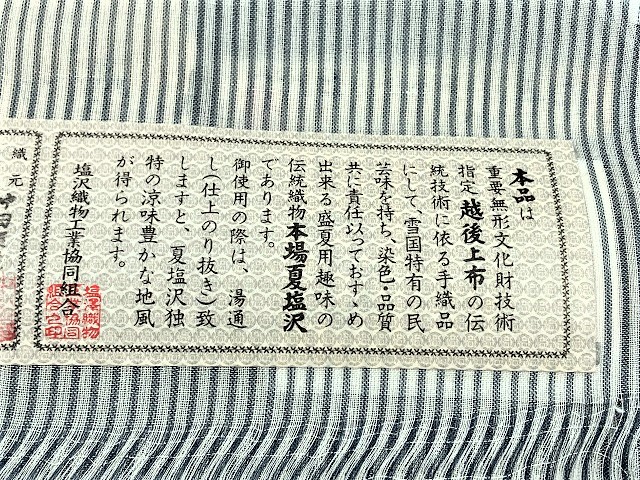 本品は
重要無形文化財技術
指定越後上布の伝
統技術に依る手織品
にして、雪国特有の民
芸味を持ち、染色・品質
共に責任以っておすゝめ
出来る盛夏用趣味の
伝統織物本場夏塩沢
であります。
御使用の際は、湯通
し(仕上のり抜き)致
しますと、夏塩沢独
特の涼味豊かな地風
が得られます。
塩沢織物工業協同組合
塩沢織物
工業協同
組合之印
織元